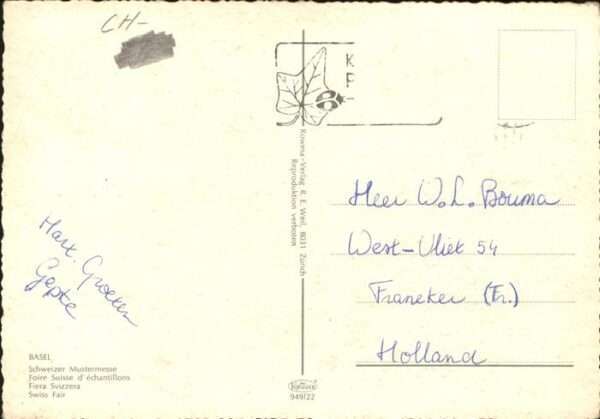 CH-
K
P
Kowena-Verlag R. E. Weil, 8031 Zürich
Reproduktion verboten
Heer W.L. Bouma
West-Vliet 54
Franeker (Fr.)
Holland
Hart. Groeten
BASEL
Schweizer Mustermesse
Foire Suisse d'échantillons
Fiera Svizzera
Swiss Fair
949/22